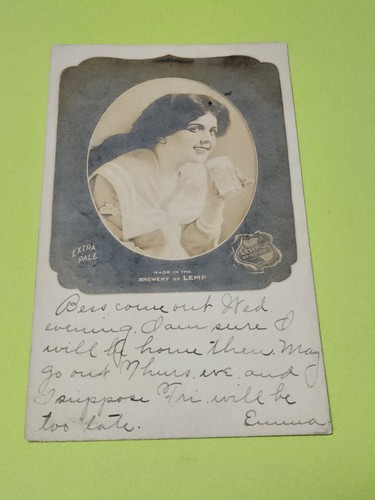 EXTRA
PALE
MADE IN THE
BREWERY OF LEMP
Bess, come out Wed.
evening. I am sure I
will be home then. May
go out Thurs. eve. and
I suppose Fri. will be
too late. Emma